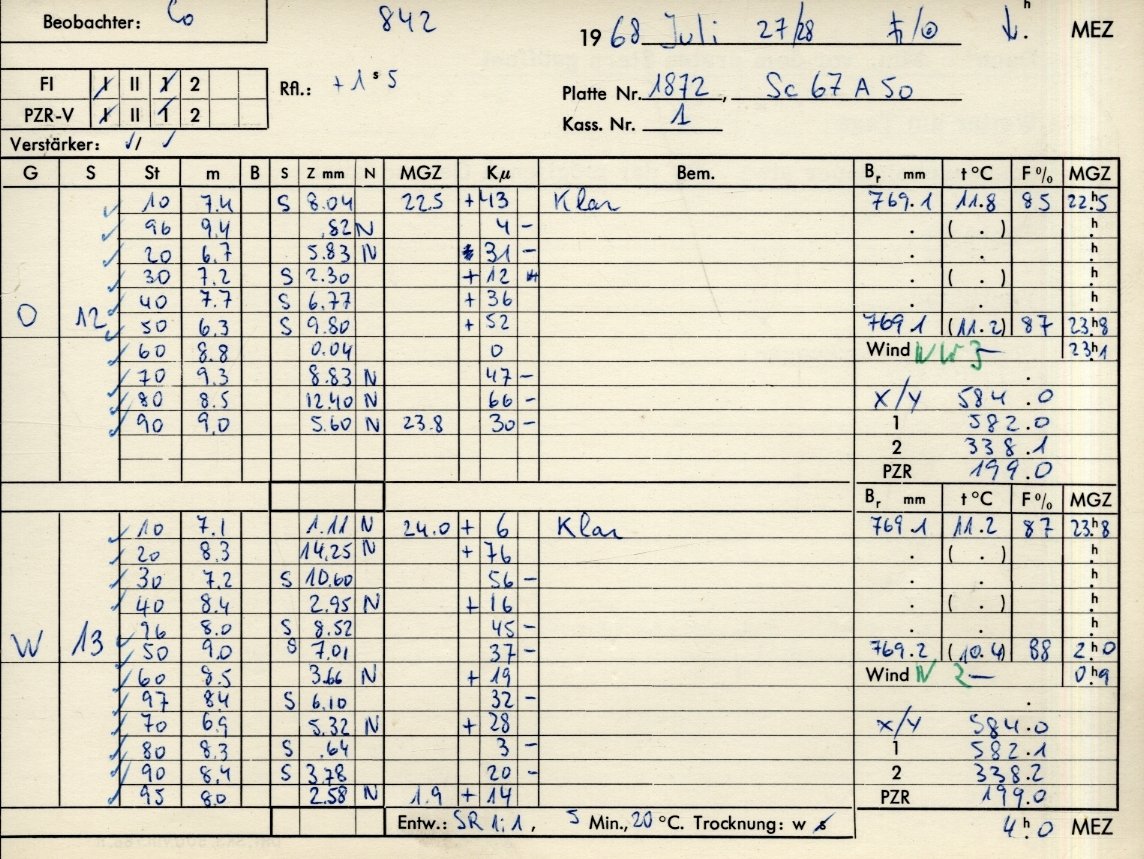 Beobachter: Co 842 1968 Juli 27/28 ♄/☉ h MEZ
FI I II 1 2 Rfl.: +1ˢ5 Platte Nr. 1872, Sc 67 A 50
PZR-V I II 1 2 Kass. Nr. 1
Verstärker: I/
G S St m B S Z mm N MGZ Kµ Bem. Bᵣ mm t °C F % MGZ
10 7.4 S 8.04 22.5 +43 Klar 769.1 11.8 85 22ʰ5
96 9.4 .82 N 4 - . ( . ) h
20 6.7 5.83 N 31 - . . h
30 7.2 S 2.30 +12 . ( . ) h
40 7.7 S 6.77 +36 . . h
O 12 50 6.3 S 9.80 +52 769.1 (11.2) 87 23ʰ8
60 8.8 0.04 0 Wind NW 3 23ʰ1
70 9.3 8.83 N 47 - .
80 8.5 12.40 N 66 - X/Y 584.0
90 9.0 5.60 N 23.8 30 - 1 582.0
2 338.1
PZR 199.0
Bᵣ mm t °C F % MGZ
10 7.1 1.11 N 24.0 + 6 Klar 769.1 11.2 87 23ʰ8
20 8.3 14.25 N +76 . ( . ) h
30 7.2 S 10.60 56 - . . h
40 8.4 2.95 N +16 . ( . ) h
96 8.0 S 8.52 45 - . . h
W 13 50 9.0 S 7.01 37 - 769.2 (10.4) 88 2ʰ0
60 8.5 3.66 N +19 Wind N 2 0ʰ9
97 8.4 S 6.10 32 - .
70 6.9 5.32 N +28 X/Y 584.0
80 8.3 S .64 3 - 1 582.1
90 8.4 S 3.78 20 - 2 338.2
95 8.0 2.58 N 1.9 +14 PZR 199.0
Entw.: SR 1:1, 5 Min., 20 °C. Trocknung: w s 4ʰ0 MEZ